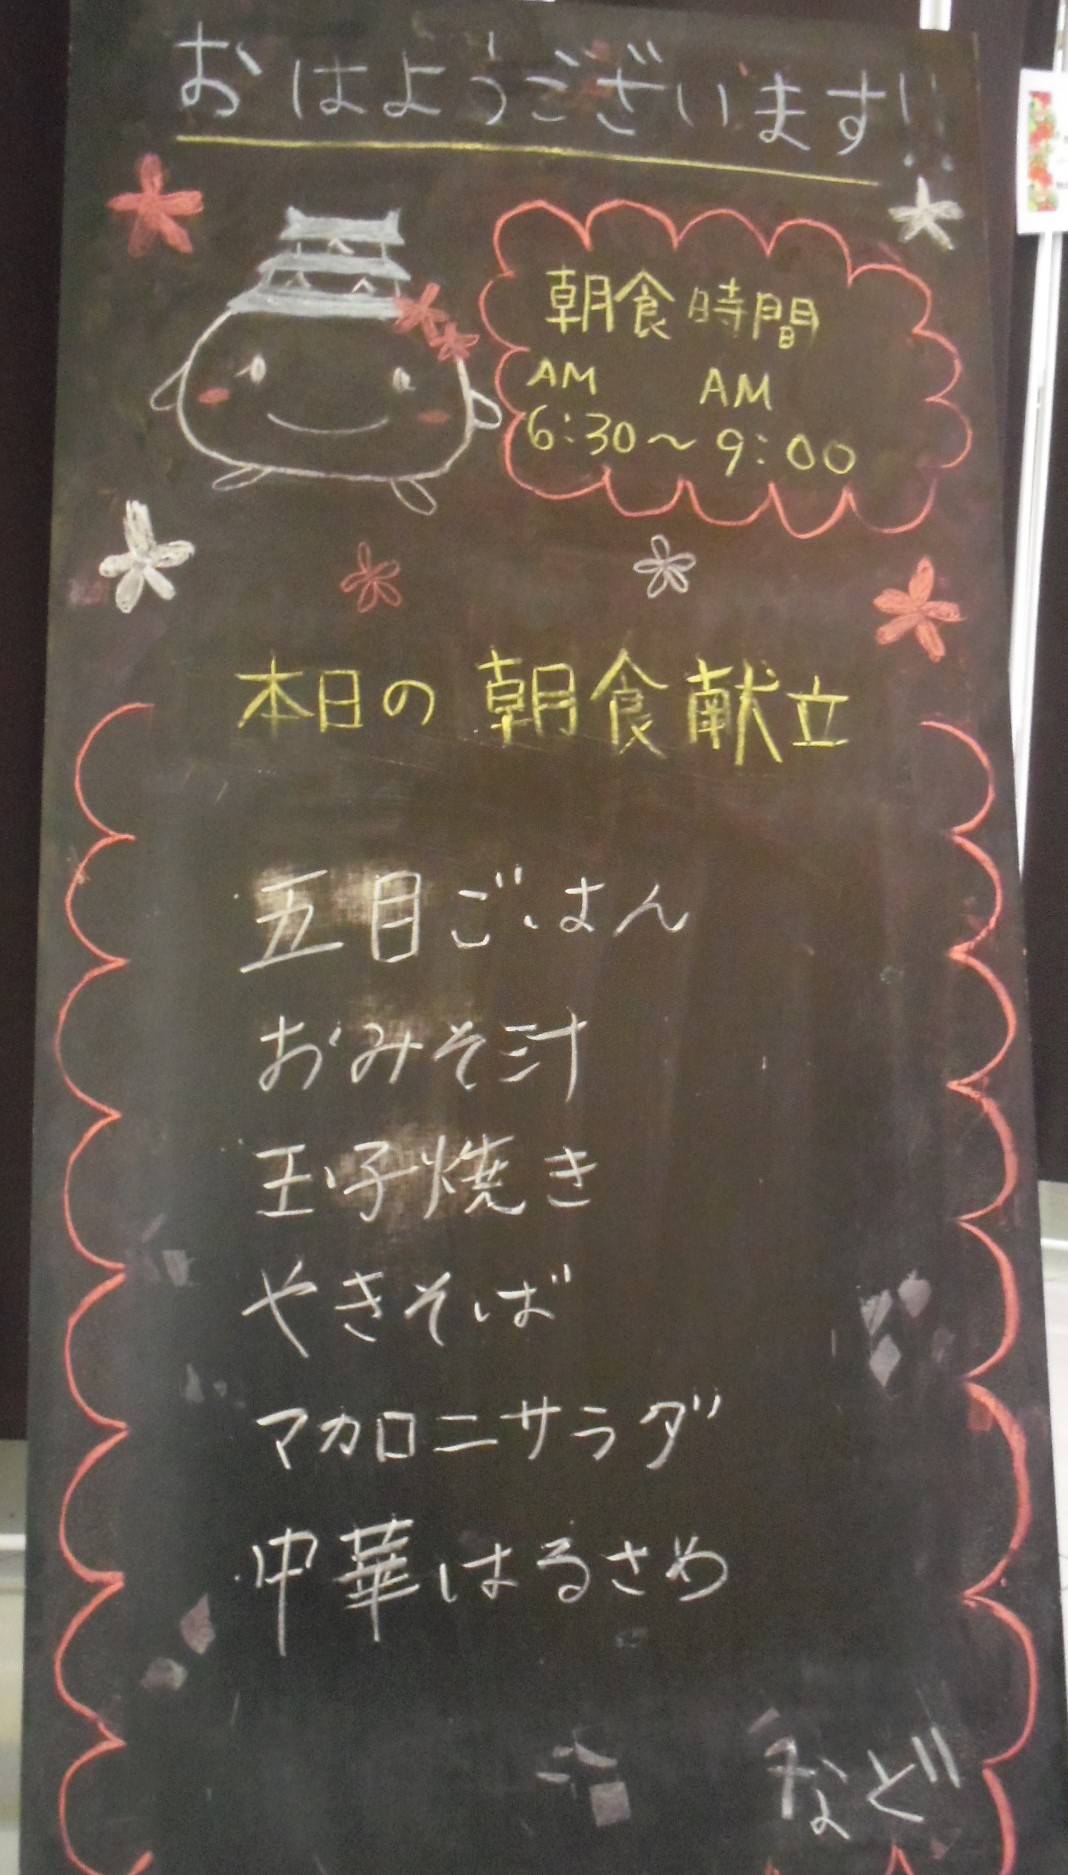 おはようございます!!
朝食時間
AM AM
6:30〜9:00
本日の朝食献立
五目ごはん
おみそ汁
玉子焼き
やきそば
マカロニサラダ
中華はるさめ
など